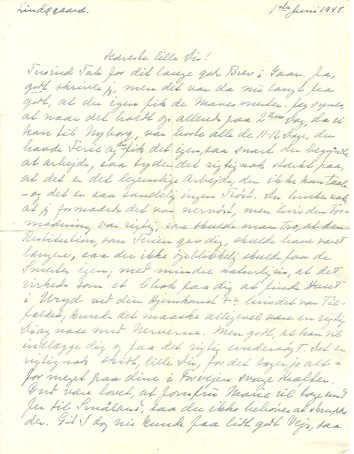 Lindegaard. 1ste Juni 1948.
Kæreste lille Sis!
Tusinde Tak for dit lange gode Brev i Gaar. Ja,
godt skrives j, men det var da nu langt fra
godt, at du igen fik de Mavesmerter. Jeg synes,
at naar det holdt op allerede paa 2den Dag, da vi
kom til Nyborg, var borte alle de 11-12 Dage, du
havde Ferie og fik det igen, saa snart du begyndte
at arbejde, saa tyder det rigtignok stærkt paa,
at det er det legemlige Arbejde, du ikke kan taale
- og det er saa sandelig ingen Trøst. Du husker nok
at jeg formodede det var nervøst, men hvis den For-
modning var rigtig, saa skulde man tro, at den
Restitution, som Ferien gav dig, skulde have varet
længere, saa du ikke øjeblikkelig skulde faa de
Smerter igen, med mindre naturligvis, at det
virkede som et Chok paa dig at finde Huset
i Uryd ved din Hjemkomst hvis det var Til-
fældet, kunde det maaske alligevel være en rigtig
Diagnose med Nerverne. Men godt, at han vil
indlægge dig og paa det rigtig undersøgt. Det er
rigtignok skidt, lille Sis, for det tager jo alt-
for meget paa dine i Forvejen svage Kræfter.
Gud være lovet, at Jomfru Marie vil tage med
Jer til Småland, saa du ikke behøver at
der. Gid I dog nu kunde faa lidt godt Vejr, saa